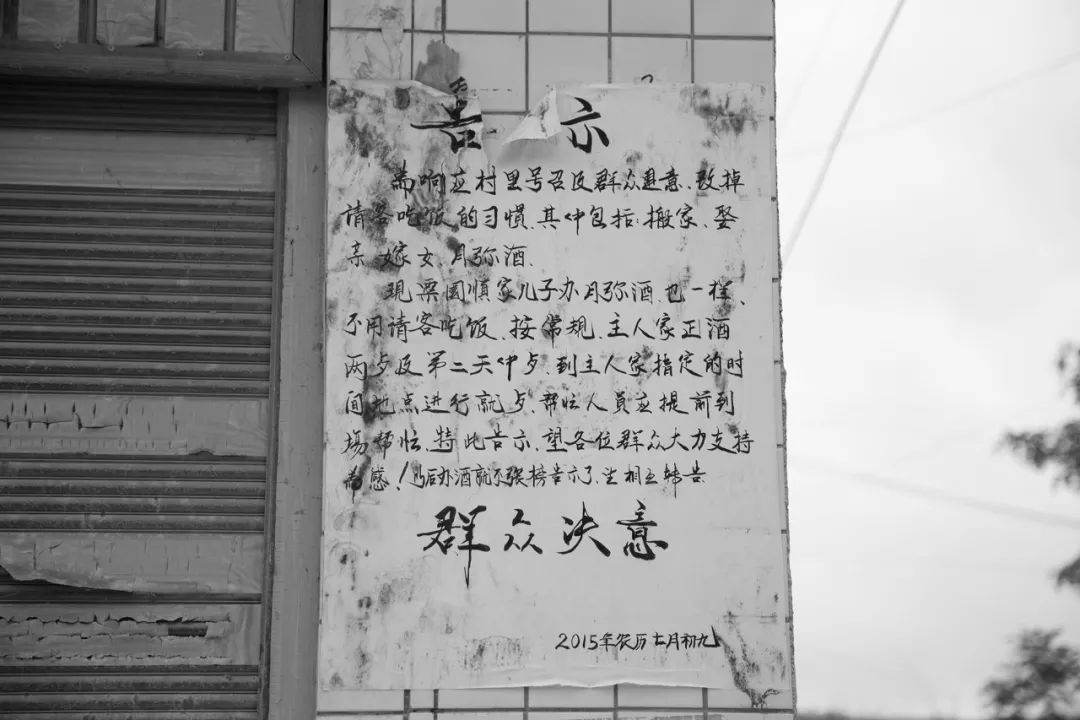 告示
为响应村里号召及群众建意、改掉
请客吃饭的习惯.其中包括:搬家、娶
亲 嫁女、月弥酒.
现票国慎家儿子办月弥酒.也一样、
不用请客吃饭、按常规、主人家正酒
两歺及第二天中歺.到主人家指定的时
间地点进行就歺、帮忙人員应提前到
場帮忙.特此告示、望各位群众大力支持
为感!以后办酒就不張榜告示了、望相互转告
群众决意
2015年农历七月初九